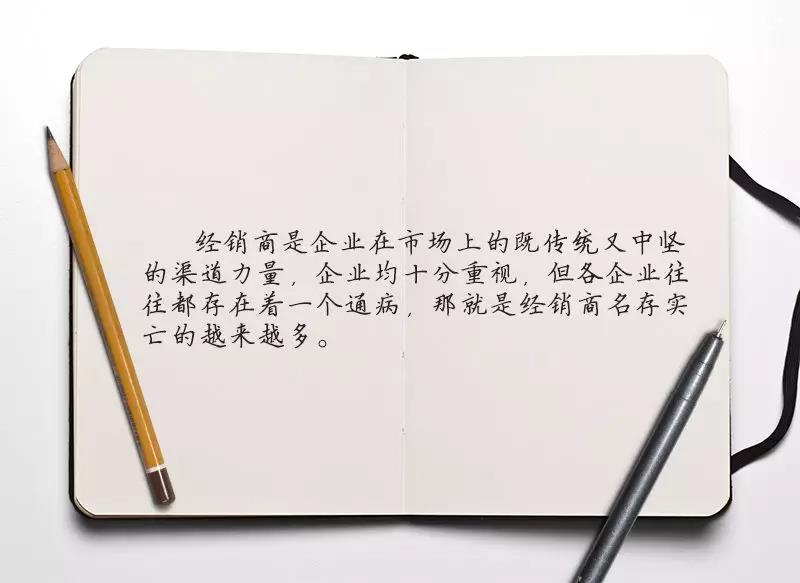 经销商是企业在市场上的既传统又中坚
的渠道力量，企业均十分重视，但各企业往
往都存在着一个通病，那就是经销商名存实
亡的越来越多。